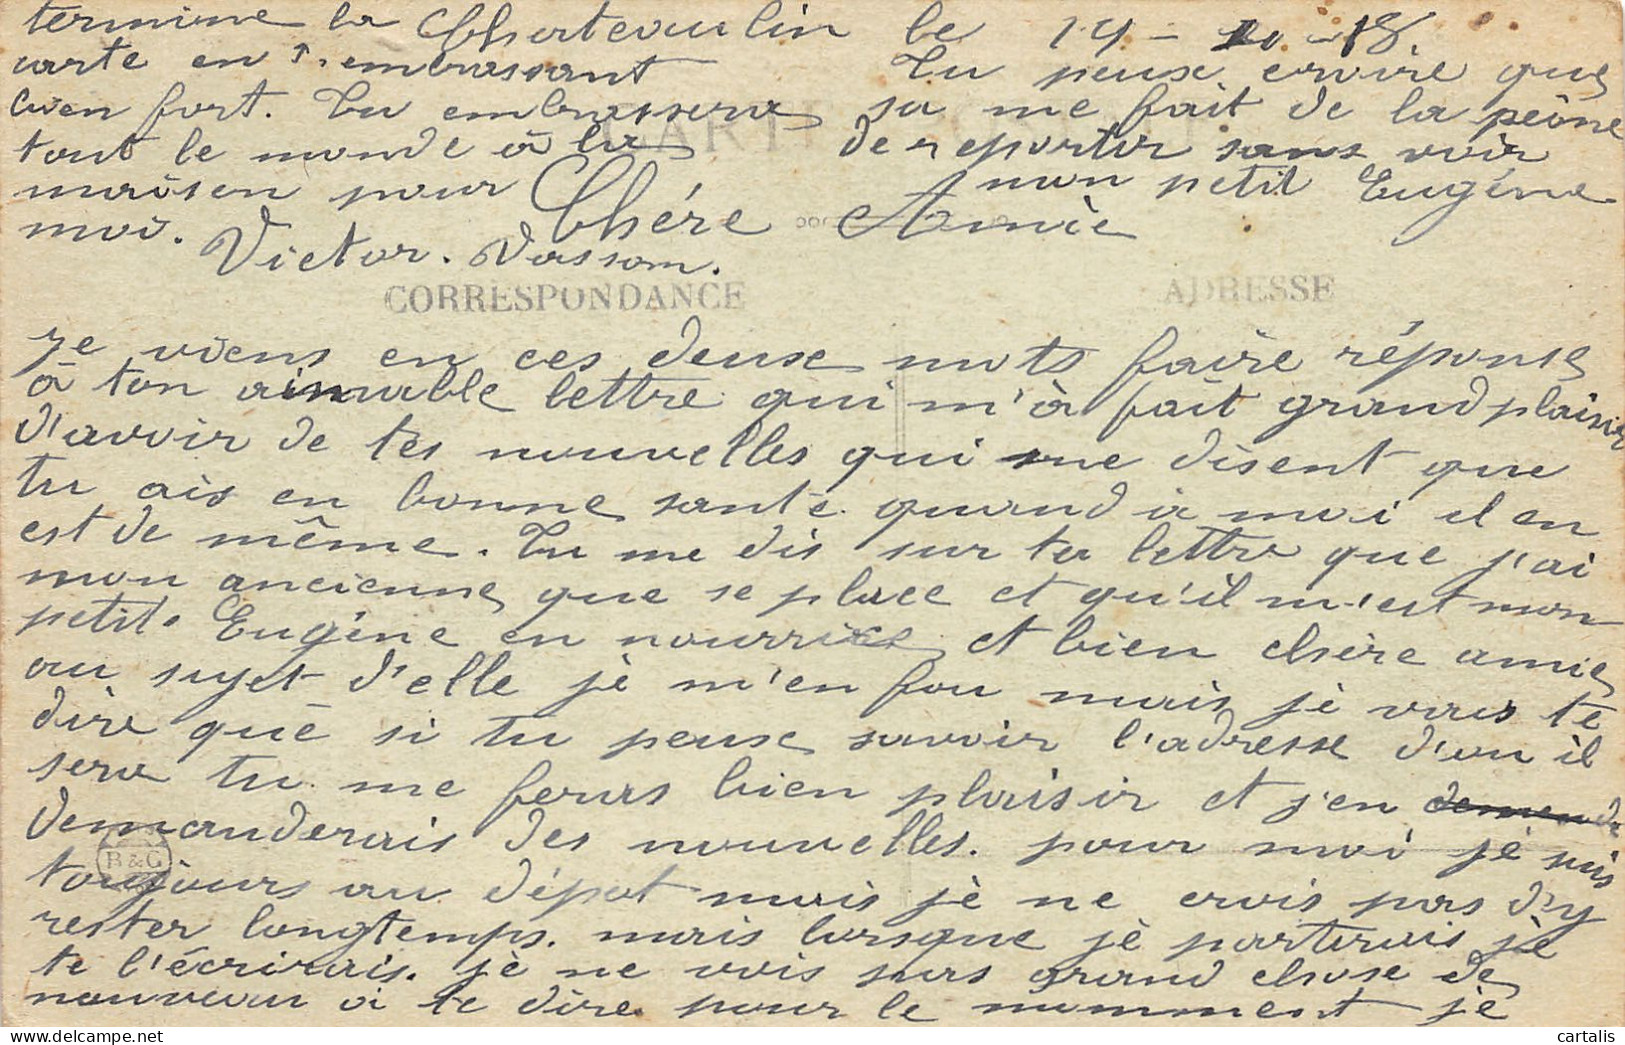 Chateaulin le 19 - 10 - 18.
Tu peux croire que
sa me fait de la peène
de repartir sans voir
mon petit Eugéne
CARTE POSTALE
Chére Amiè
CORRESPONDANCE
ADRESSE
je viens en ces deuxe mots faire réponse
à ton aimable lettre qui m'à fait grand plaisir
d'avoir de tes nouvelles qui me disent que
tu ais en bonne santé. quand à moi il en
est de même. Tu me dis sur ta lettre que j'ai
mon ancienne que se place et qu'il m'est mon
petit. Eugéne en nourrice et bien chère amie
au sujet d'elle jè m'en fou mais jè vais te
dire que si tu peuxe savoir l'adresse d'ou il
sera tu me feras bien plaisir et j'en
demanderais des nouvelles. pour moi jè suis
toujours au dépot mais jè ne crois pas d'y
rester longtemps. mais lorsque jè partirais jè
te l'écrirais. jè ne vois pas grand chose de
nouveau à te dire pour le momment je
termine la
carte en t'embrassant
bien fort. Tu embrassera
tout le monde à la
maison pour
moi.
Victor. Vasson.
B & G
cartalis